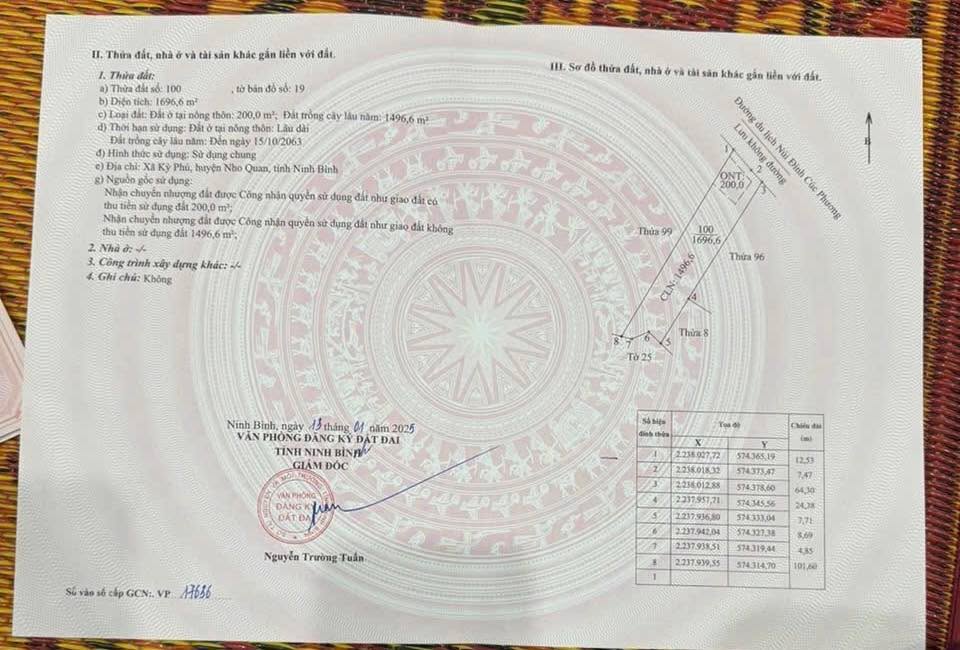 II. Thửa đất, nhà ở và tài sản khác gắn liền với đất.
1. Thửa đất:
a) Thửa đất số: 100 , tờ bản đồ số: 19
b) Diện tích: 1696,6 m²
c) Loại đất: Đất ở tại nông thôn: 200,0 m²; Đất trồng cây lâu năm: 1496,6 m²
d) Thời hạn sử dụng: Đất ở tại nông thôn: Lâu dài
Đất trồng cây lâu năm: Đến ngày 15/10/2063
đ) Hình thức sử dụng: Sử dụng chung
e) Địa chỉ: Xã Kỳ Phú, huyện Nho Quan, tỉnh Ninh Bình
g) Nguồn gốc sử dụng:
Nhận chuyển nhượng đất được Công nhận quyền sử dụng đất như giao đất có
thu tiền sử dụng đất 200,0 m²;
Nhận chuyển nhượng đất được Công nhận quyền sử dụng đất như giao đất không
thu tiền sử dụng đất 1496,6 m²;
2. Nhà ở: -/-
3. Công trình xây dựng khác: -/-
4. Ghi chú: Không
Ninh Bình, ngày 13 tháng 01 năm 2025
VĂN PHÒNG ĐĂNG KÝ ĐẤT ĐAI
TỈNH NINH BÌNH
GIÁM ĐỐC
VĂN PHÒNG
ĐĂNG KÝ
ĐẤT ĐAI
Nguyễn Trường Tuấn
Số vào sổ cấp GCN:. VP 17686
III. Sơ đồ thửa đất, nhà ở và tài sản khác gắn liền với đất.
Đường du lịch Núi Đính Cúc Phương
Lưu không đường
B
1
2
3
ONT:
200,0
Thửa 99
100
1696,6
Thửa 96
CLN: 1496,6
4
Thửa 8
8
7
6
5
Tờ 25
Số hiệu đỉnh thửa Tọa độ Chiều dài (m)
X Y
1 2.238.027,72 574.365,19
12,53
2 2.238.018,32 574.373,47
7,47
3 2.238.012,88 574.378,60
64,30
4 2.237.957,71 574.345,56
24,38
5 2.237.936,80 574.333,04
7,71
6 2.237.942,04 574.327,38
8,69
7 2.237.938,51 574.319,44
4,85
8 2.237.939,55 574.314,70
101,60
1